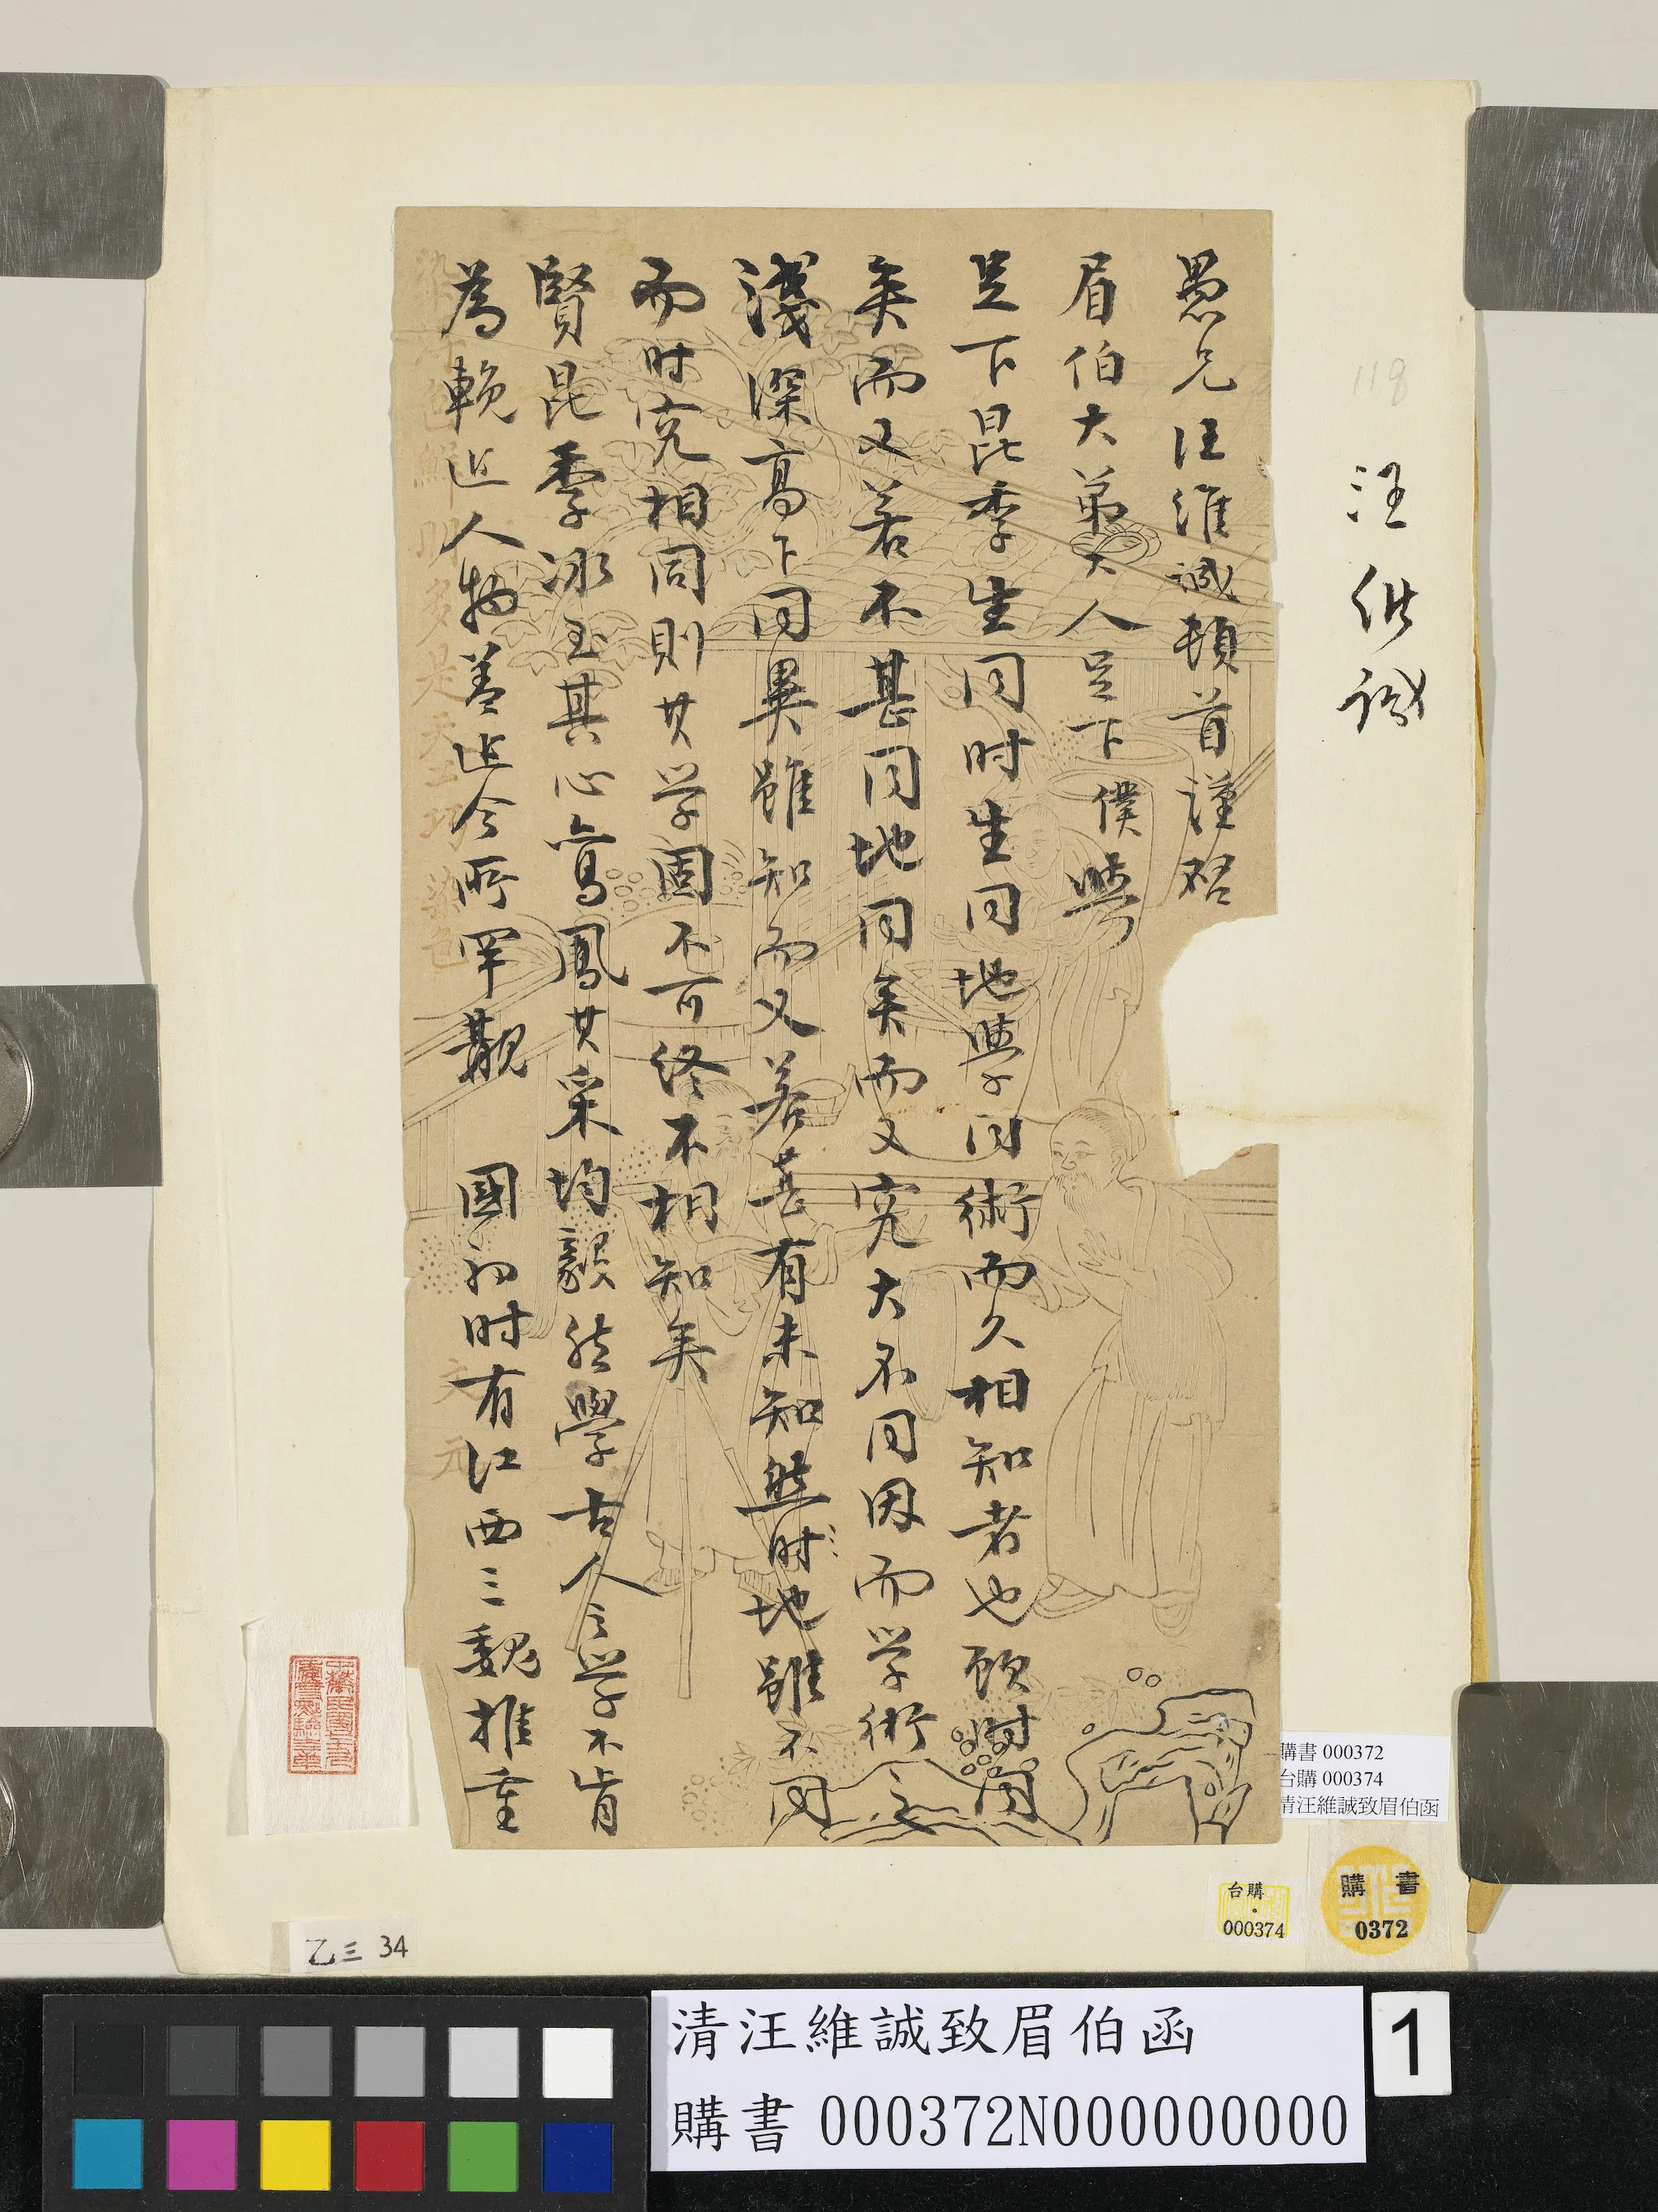 愚兄汪維誠頓首謹啓
眉伯大弟大人足下僕與
足下昆季生同時生同地學同術而久相知者也顧時同
矣而又若不甚同地同矣而又究大不同因而学術之
淺深高下同異雖知而又若甚有未知然時地雖不同
而时究相同則其学固不可终不相知矣
賢昆季冰玉其心鸞鳳其采均毅然學古人之学不肯
為靰近人物蓋近今所罕觀 國初时有江西三魏推重
118
汪維誠
購書 000372
台購 000374
清汪維誠致眉伯函
台購
000374
購書
0372
乙三 34
清汪維誠致眉伯函
購書 000372N000000000
1